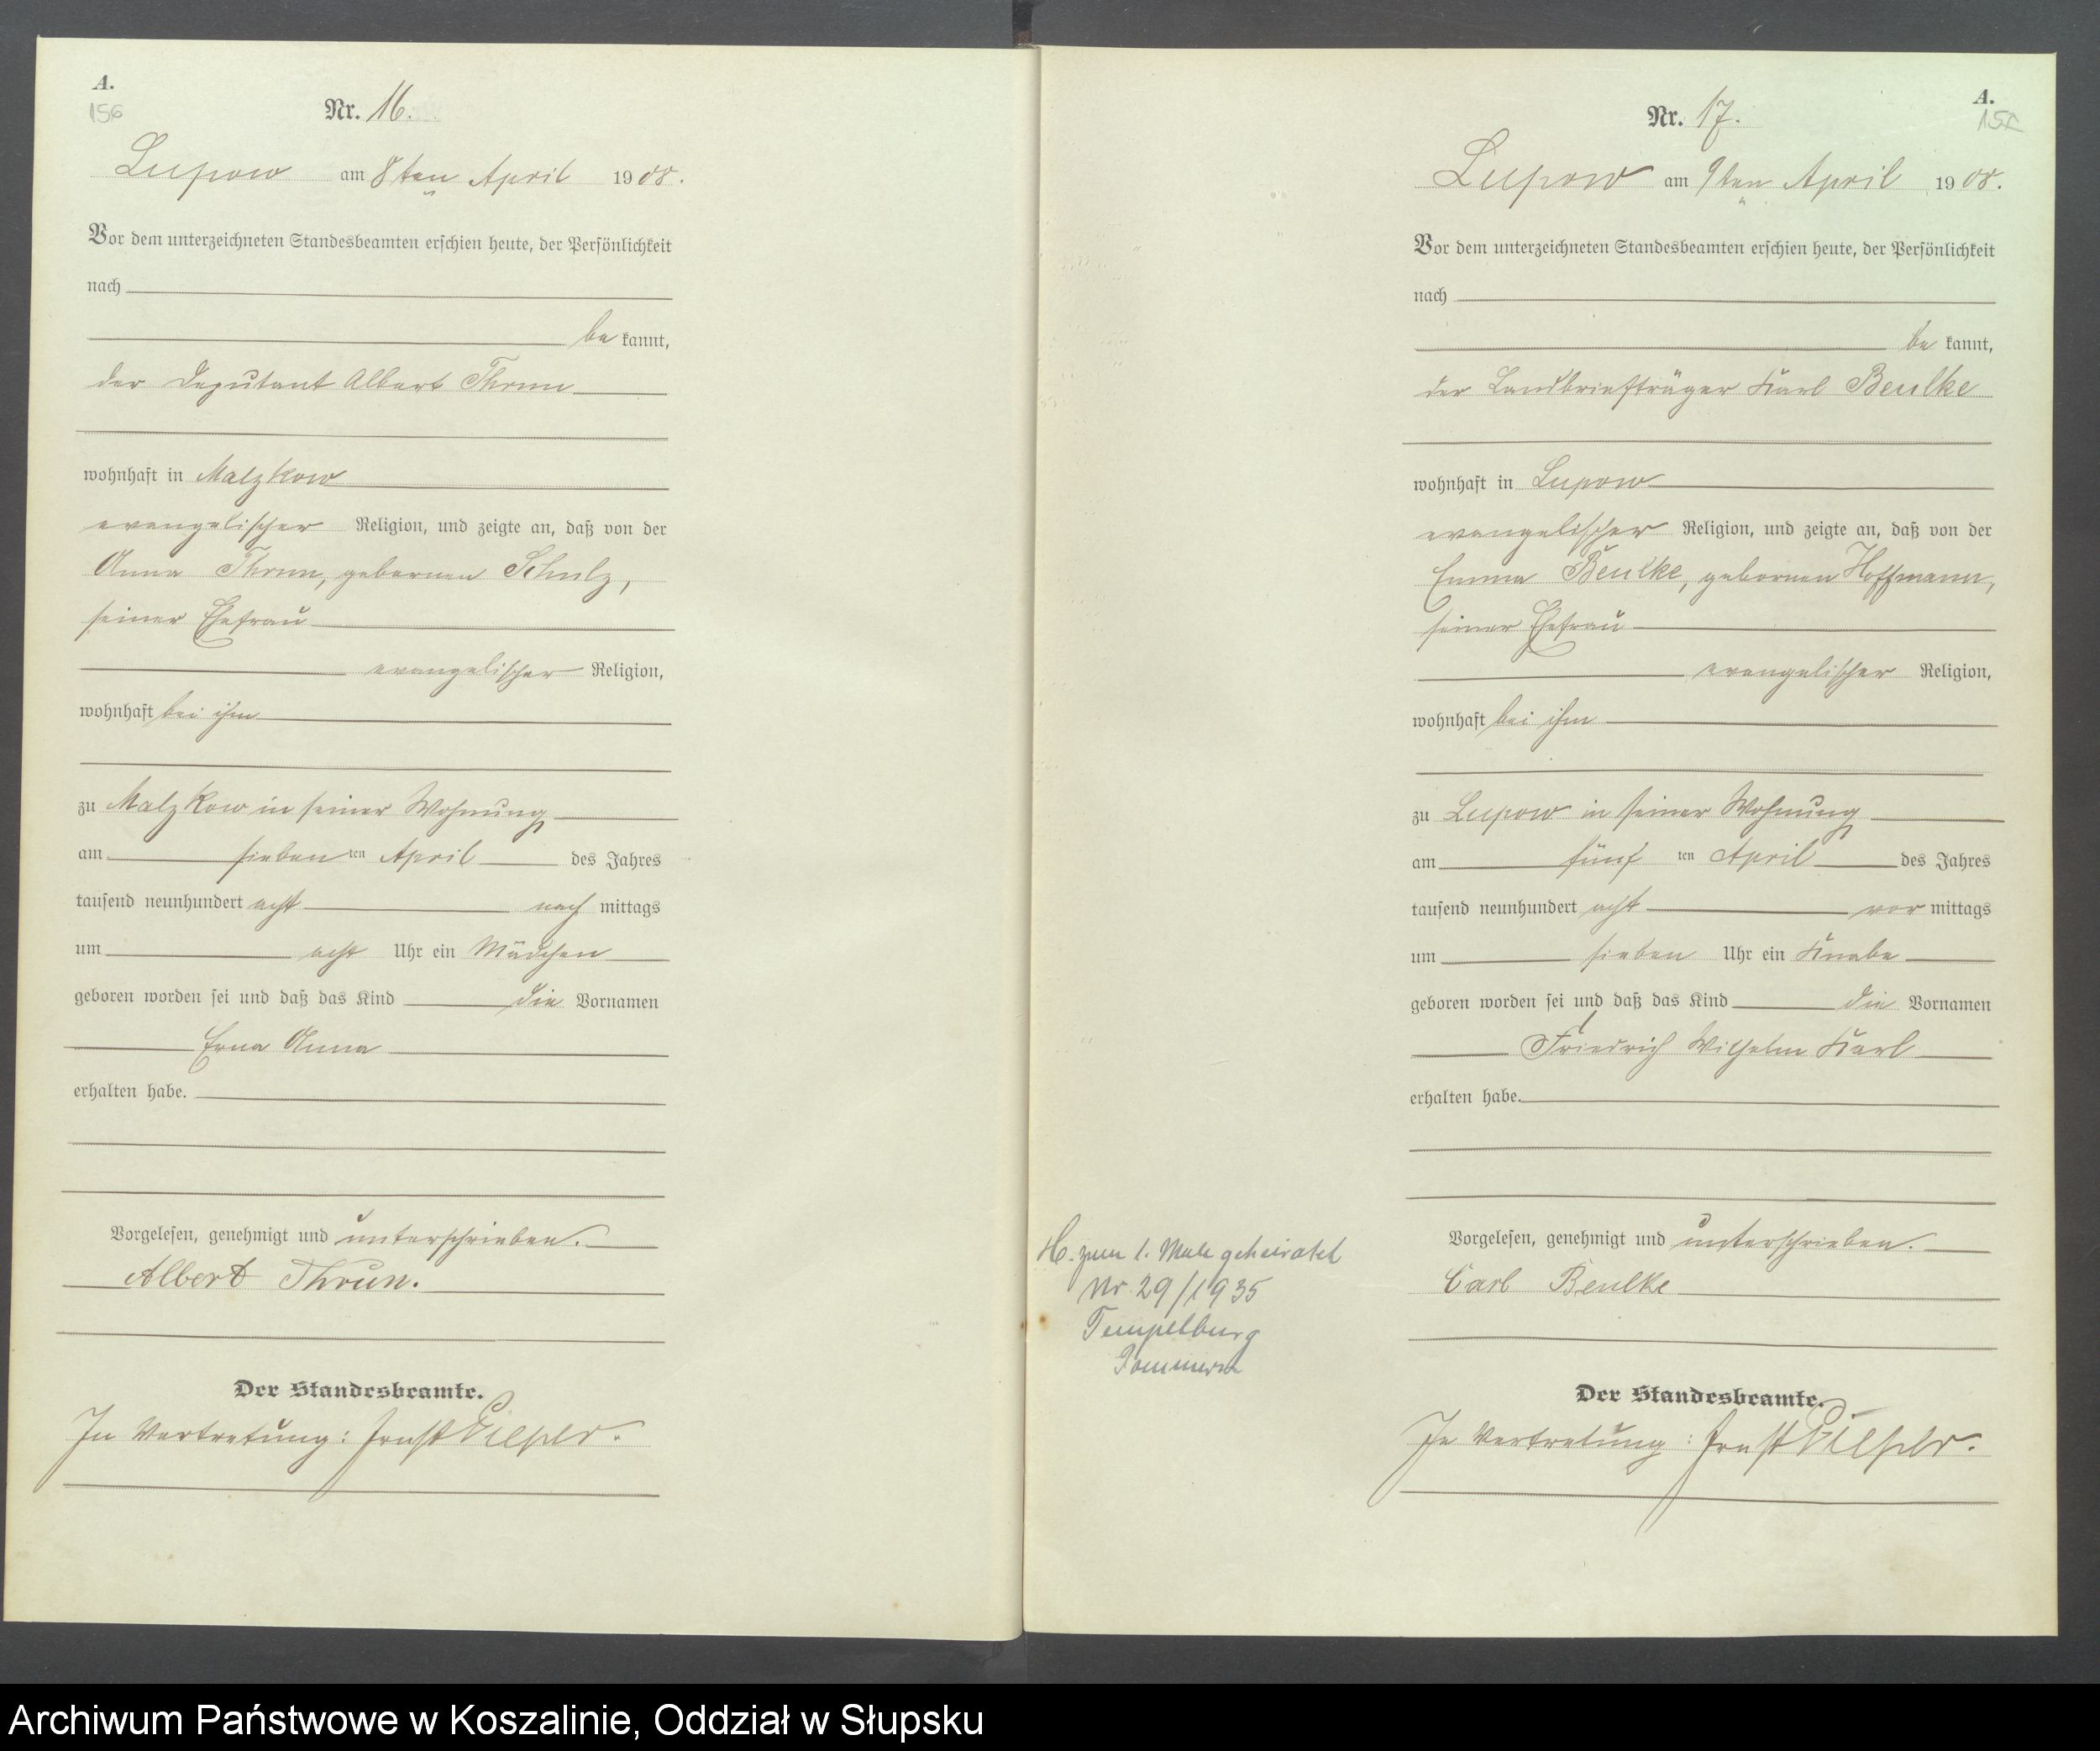 A.
156
Nr. 16.
Lupow am 8ten April 1908.
Vor dem unterzeichneten Standesbeamten erschien heute, der Persönlichkeit
nach
be kannt,
der Deputant Albert Thrun
wohnhaft in Malzkow
evangelischer Religion, und zeigte an, daß von der
Anna Thrun, geborenen Schulz,
seiner Ehefrau
evangelischer Religion,
wohnhaft bei ihm
zu Malzkow in seiner Wohnung
am sieben ten April des Jahres
tausend neunhundert acht nach mittags
um acht Uhr ein Mädchen
geboren worden sei und daß das Kind die Vornamen
Erna Anna
erhalten habe.
Vorgelesen, genehmigt und unterschrieben.
Albert Thrun.
Der Standesbeamte.
In Vertretung: Ernst
A.
Nr. 17.
Lupow am 9ten April 1908.
Vor dem unterzeichneten Standesbeamten erschien heute, der Persönlichkeit
nach
be kannt,
der Landbriefträger Karl Beulke
wohnhaft in Lupow
evangelischer Religion, und zeigte an, daß von der
Emma Beulke, geborenen Hoffmann,
seiner Ehefrau
evangelischer Religion,
wohnhaft bei ihm
zu Lupow in seiner Wohnung
am fünf ten April des Jahres
tausend neunhundert acht vor mittags
um sieben Uhr ein Knabe
geboren worden sei und daß das Kind die Vornamen
Friedrich Wilhelm Karl
erhalten habe.
Vorgelesen, genehmigt und unterschrieben.
Carl Beulke
Der Standesbeamte.
In Vertretung: Ernst
H. zum 1. Male geheiratet
Nr. 29/1935
Tempelburg
Pommern
Archiwum Państwowe w Koszalinie, Oddział w Słupsku